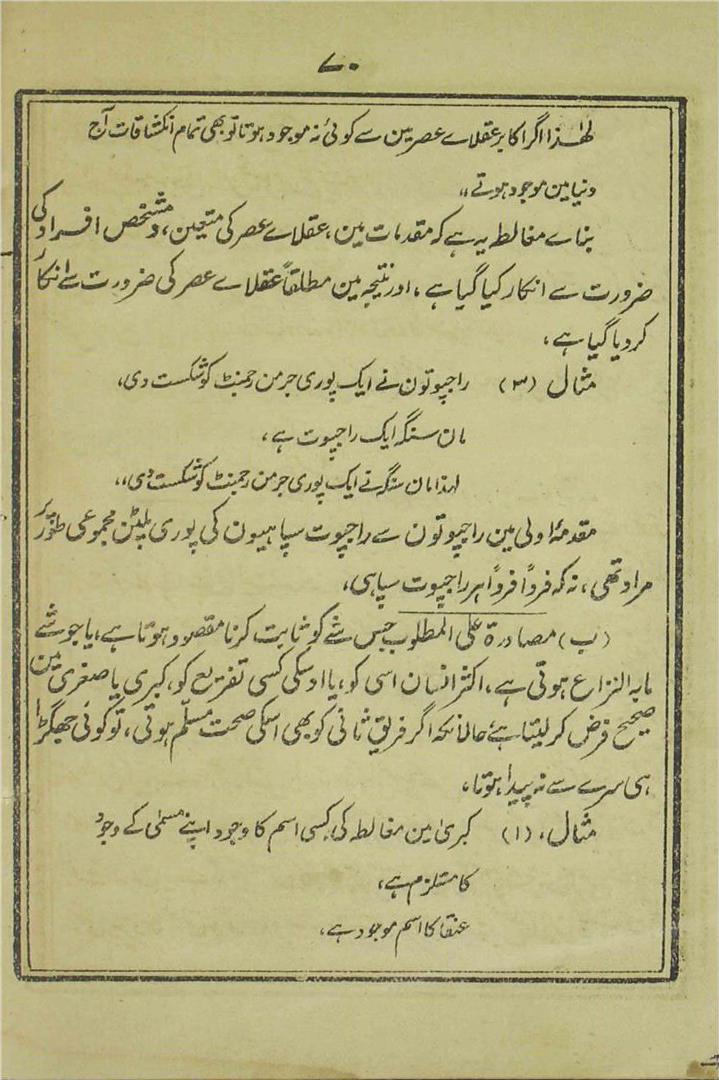 ۷۰
لھٰذا اگر اکابر عقلاے عصر مین سے کوئی نہ موجود ہوتا تو بھی تمام انکشافات آج
دنیا مین موجود ہوتے،،
بناے مغالطہ یہ ہے کہ مقدمات مین، عقلاے عصر کی متعین، و مشخص افراد کی
ضرورت سے انکار کیا گیا ہے، اور نتیجہ مین مطلقاً عقلاے عصر کی ضرورت سے انکار
کر دیا گیا ہے،
مثال (۳) راجپوتون نے ایک پوری جرمن رجمنٹ کو شکست دی،
مان سنگہ ایک راجپوت ہے،
لہذا مان سنگہ نے ایک پوری جرمن رجمنٹ کو شکست دی،،
مقدمۂ اولی مین راجپوتون سے راجپوت سپاہیون کی پوری پلٹن مجموعی طور پر
مراد تھی، نہ کہ فرداً فرداً ہر راجپوت سپاہی،
(ب) مصادرۃ علی المطلوب جس شے کو ثابت کرنا مقصود ہوتا ہے، یا جو شے
مابہ النزاع ہوتی ہے، اکثر انسان اسی کو، یا اوسکی کسی تفریع کو، کبری یا صغری مین
صحیح فرض کر لیتا ہے حالانکہ اگر فریق ثانی کو بھی اسکی صحت مسلّم ہوتی، تو کوئی جھگڑا
ہی سرے سے نہ پیدا ہوتا،
مثال، (۱) کبریٰ مین مغالطہ کی کسی اسم کا وجود اپنے مسمٰی کے وجود
کا مستلزم ہے،
عنقا کا اسم موجود ہے،